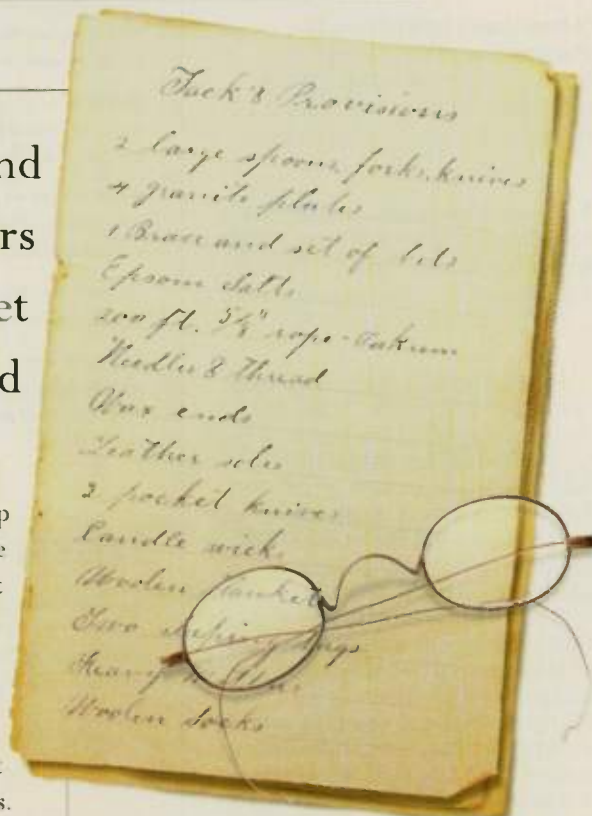 Jack's Provisions
2 large spoons, forks, knives
4 granite plates
1 Brace and set of bits
Epsom Salts
200 ft. 5/8" rope - Oakum
Needles & thread
Wax ends
Leather soles
pocket knives
Candle wick
Woolen blankets
Two sleeping bags
Heavy
Woolen socks
nd
rs
et
d
p
e
t
t
s.